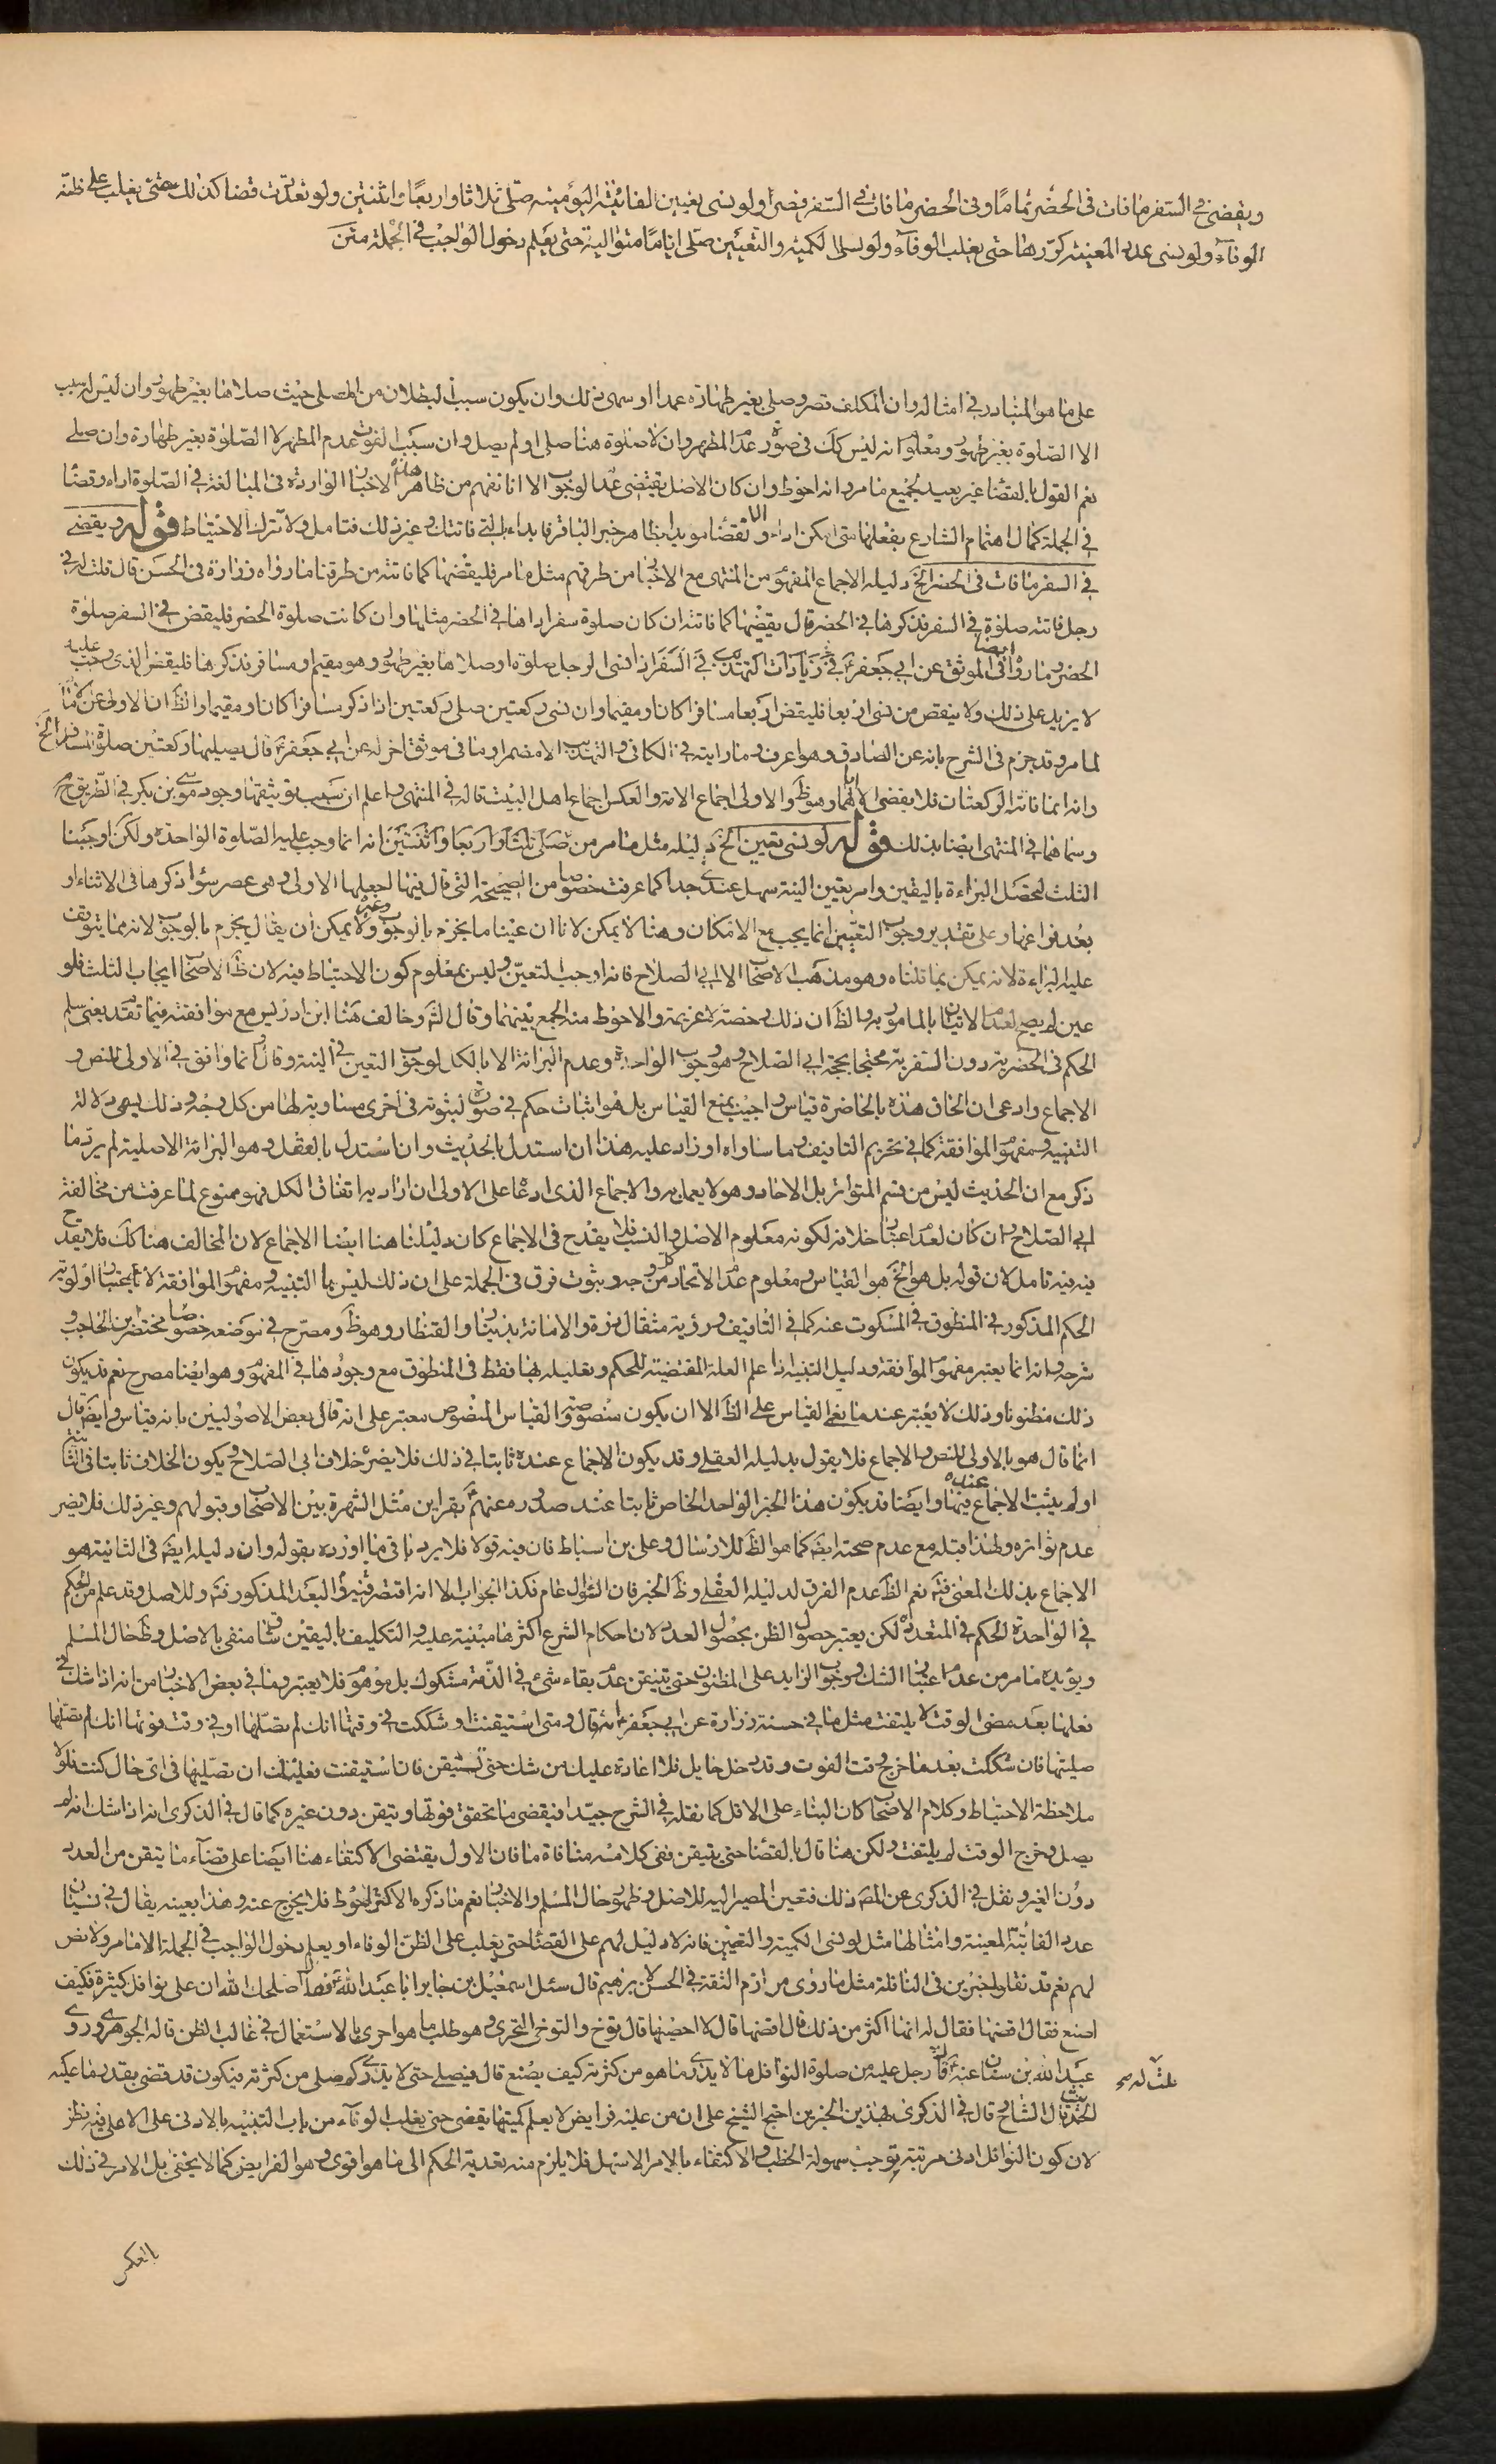 ويقضى فى السفر ما فات فى الحضر تماما وفى الحضر ما فات فى السفر قصرا ولو نسى تعيين الفائتة اليومية صلى ثلاثا واربعا واثنتين ولو تعددت قضا كذلك حتى يغلب على ظنه
الوفاء ولو نسى عدد المعينة كررها حتى يغلب الوفاء ولو نسى الكمية والتعيين صلى اياما متوالية حتى يعلم دخول الواجب فى الجملة متن
على ما هو المتبادر فى امثاله وان المكلف قصر وصلى بغير طهارة عمدا او سهى ذلك وان يكون سببا لبطلان من المصلى حيث صلاها بغير طهور وان ليس له سبب
الا الصلوة بغير طهور ومعلوم انه ليس كك فى صورة عدم المطهر وان لا صلوة هنا صلى او لم يصل وان سبب الفوت عدم المطهر لا الصلوة بغير طهارة وان صلى
نعم القول بالقضاء غير بعيد لجميع ما مر وانه احوط وان كان الاصل يقتضى عدم الوجوب الا انا نفهم من ظاهر هذه الاخبار الواردة فى المبالغة فى الصلوة اداء وقضاء
فى الجملة كمال اهتمام الشارع بفعلها متى امكن اداء والا فقضاء مويدا بظاهر خبر الباقر فابداء بالتى فاتتك وغير ذلك فتامل ولا تترك الاحتياط قوله ويقضى
فى السفر ما فات فى الحضر الخ دليله الاجماع المفهوم من المنتهى مع الاخبار من طرقهم مثل ما مر فليقضها كما فاتته من طرقنا ما رواه زرارة فى الحسن قال قلت له
رجل فاتته صلوة فى السفر فذكرها فى الحضر قال يقضيها كما فاتته ان كان صلوة سفر اداها فى الحضر مثلها وان كانت صلوة الحضر فليقض فى السفر صلوة
الحضر وما رواه ايضا فى الموثق عن ابى جعفر ع فى زيادات التهذيب فى السفر اذا نسى الرجل صلوة او صلاها بغير طهور وهو مقيم او مسافر فذكرها فليقض الذى وجب عليه
لا يزيد على ذلك ولا ينقص من نسى اربعا فليقض اربعا مسافرا كان او مقيما وان نسى ركعتين صلى ركعتين اذا ذكر مسافرا كان او مقيما والظ ان الاولى عن
لما مر وقد جزم فى الشرح بانه عن الصادق وهو اعرف وما رايته فى الكافى والتهذيب الا مضمرا وما فى موثق اخر له عن ابى جعفر قال يصليها ركعتين صلوة المسافر الخ
وانه انما فاتته الركعتان فلا يقضى الا اياهما وهو ظ والاولى اجماع الامة والعكس اجماع اهل البيت قاله فى المنتهى واعلم ان سبب توثيقها وجود موسى بن بكر فى الطريق
وسماهما فى المنتهى ايضا بذلك قوله لو نسى تعيين الخ دليله مثل ما مر من صلى ثلثا واربعا واثنتين انه انما وجب عليه الصلوة الواحدة ولكن اوجبنا
الثلث لتحصل البراءة باليقين وامر تعيين النية سهل عندى جدا كما عرفت خصوصا من الصحيحة التى قال فيها لجعلها الاولى وهى عصر سواء ذكرها فى الاثناء او
بعد فراغها وعلى تقدير وجوب التعيين انما يجب مع الامكان وهنا لا يمكن لانا ان عينا ما نجزم بالوجوب وغيره ولا يمكن ان يقال يجزم بالوجوب لانه مما يتوقف
عليه البراءة لانه يمكن بما قلناه وهو مذهب الاصحاب الا ابى الصلاح فانه اوجب التعيين وليس بمعلوم كون الاحتياط فيه لان ظ الاصحاب ايجاب الثلث فلو
عين لم يصح لعدم الاتيان بالمامور به والظ ان ذلك رخصة لا عزيمة والاحوط منه الجمع بينهما وقال الش وخالف هنا ابن ادريس مع موافقته فيما تقدم يعنى سلم
الحكم فى الحضرية دون السفرية محتجا بحجة ابى الصلاح وهو وجوب الواحدة وعدم البراءة الا بالكل لوجوب التعين فى النية وقال انما وافق فى الاولى للنص و
الاجماع وادعى ان الحاق هذه بالحاضرة قياس واجيب بمنع القياس بل هو اثبات حكم فى صورة لثبوته فى اخرى مساوية لها من كل وجه وذلك يسمى دلالة
التنبيه ومفهوم الموافقة كما فى تحريم التافيف وما ساواه او زاد عليه هذا ان استدل بالحديث وان استدل بالعقل وهو البراءة الاصلية لم يرد ما
ذكر مع ان الحديث ليس من قسم المتواتر بل الاحاد وهو لا يعمل به والاجماع الذى ادعاه على الاولى ان اراد به اتفاق الكل فهو ممنوع لما عرفت من مخالفة
ابى الصلاح وان كان لعدم اعتبار خلافه لكونه معلوم الاصل والنسب فلا يقدح فى الاجماع كان دليلنا هنا ايضا الاجماع لان المخالف هنا كك فلا يقدح
فيه فيه تامل لان قوله بل هو الخ هو القياس ومعلوم عدم الاتحاد من كل وجه وبثوت فرق فى الجملة على ان ذلك ليس بما التنبيه ومفهوم الموافقة لانا نعتبر اولوية
الحكم المذكور فى المنطوق فى المسكوت عنه كما فى التافيف ورؤية مثقال ذرة والامانة بدينار والقنطار وهو ظ ومصرح فى موضعه خصوصا مختصر ابن الحاجب و
شرحه وانه انما يعتبر مفهوم الموافقة ودليل التنبيه اذا علم العلة المقتضية للحكم وتعليله بها فقط فى المنطوق مع وجودها فى المفهوم وهو ايضا مصرح نعم قد يكون
ذلك مظنونا وذلك لا يعتبر عند مانعى القياس على الظ الا ان يكون منصوصة والقياس المنصوص معتبر على انه قال بعض الاصوليين بانه قياس وايضا قال
انما قال هو بالاولى للنص والاجماع فلا يقول بدليله العقلى وقد يكون الاجماع عنده ثابتا فى ذلك فلا يضره خلاف ابى الصلاح ويكون الخلاف ثابتا فى الثانية
او لم يثبت الاجماع عنده فيها وايضا قد يكون هذا الخبر الواحد الخاص ثابتا عند صدوره عنهم بقراين مثل الشهرة بين الاصحاب وقبولهم وغير ذلك فلا يضر
عدم تواتره ولهذا قبله مع عدم صحته ايضا كما هو الظ للارسال وعلى بن اسباط فان فيه قولا فلا يرد باقى ما اورده بقوله وان دليله ايضا فى الثانية هو
الاجماع بذلك المعنى فتم نعم الظ عدم الفرق لدليله العقلى وظ الخبر فان السؤال عام فكذا الجواب الا انه اقتصر فيرد البعد المذكور فتم وللاصل وقد علم من الحكم
فى الواحدة الحكم فى المتعددة لكن يعتبر حصول الظن بحصول العدد لان احكام الشرع اكثرها مبنية عليه والتكليف باليقين شاق منفى بالاصل وظ حال المسلم
ويؤيده ما مر من عدم اعتبار الشك وجوب الزايد على المظنون حتى يتيقن عدم بقاء شئ فى الذمة مشكوك بل موهوم فلا يعتبر وما فى بعض الاخبار من انه اذا شك فى
فعلها بعد مضى الوقت لا يلتفت مثل ما فى حسنة زرارة عن ابى جعفر انه قال ومتى استيقنت او شككت فى وقتها انك لم تصلها او فى وقت فوتها انك لم تصلها
صليتها فان شككت بعد ما خرج وقت الفوت وقد دخل حايل فلا اعادة عليك من شك حتى تستيقن فان استيقنت فعليك ان تصليها فى اى حال كنت فلولا
ملاحظة الاحتياط وكلام الاصحاب كان البناء على الاقل كما نقله فى الشرح جيدا فيقضى ما تحقق فوتها ويتيقن دون غيره كما قال فى الذكرى انه اذا شك انه لم
يصل وخرج الوقت لم يلتفت ولكن هنا قال بالقضاء حتى يتيقن ففى كلامه منافاة ما فان الاول يقتضى الاكتفاء هنا ايضا على قضاء ما يتقن من العدد
دون الغير ونقل فى الذكرى عن المصـ ذلك فتعين المصير اليه للاصل وظهور حال المسلم والاخبار نعم ما ذكره الاكثر احوط فلا يخرج عنه وهذا بعينه يقال فى نسيان
عدد الفائتة المعينة وامثالها مثل لو نسى الكمية والتعيين فانه لا دليل لهم على القضاء حتى يغلب على الظن الوفاء او يعلم دخول الواجب فى الجملة الا ما مر ولا نص
لهم نعم قد نقلوا خبرين فى النافلة مثل ما روى مرازم الثقة فى الحسن لابرهيم قال سئل اسمعيل بن جابر ابا عبد الله ع فقال اصلحك الله ان على نوافل كثيرة فكيف
اصنع فقال اقضها فقال له انها اكثر من ذلك قال اقضها قال لا احصيها قال توخ والتوخى التحرى وهو طلب ما هو احرى بالاستعمال فى غالب الظن قاله الجوهرى وروى
عبد الله بن سنان عنه ع قال رجل عليه من صلوة النوافل ما لا يدرى ما هو من كثرته كيف يصنع قال فيصلى حتى لا يدرى كم صلى من كثرته فيكون قد قضى بقدر ما عليه
قلت له صح
الحديث قال الشارح وقال فى الذكرى بهذين الخبرين احتج الشيخ على ان من عليه فرايض لا يعلم كميتها يقضى حتى يغلب الوفاء من باب التنبيه بالادنى على الاعلى فيه نظر
لان كون النوافل ادنى مرتبة يوجب سهولة الخطب والاكتفاء بالامر الاسهل فلا يلزم منه تعدية الحكم الى ما هو اقوى وهو الفرايض كما لا يخفى بل الامر فى ذلك
بالعكس